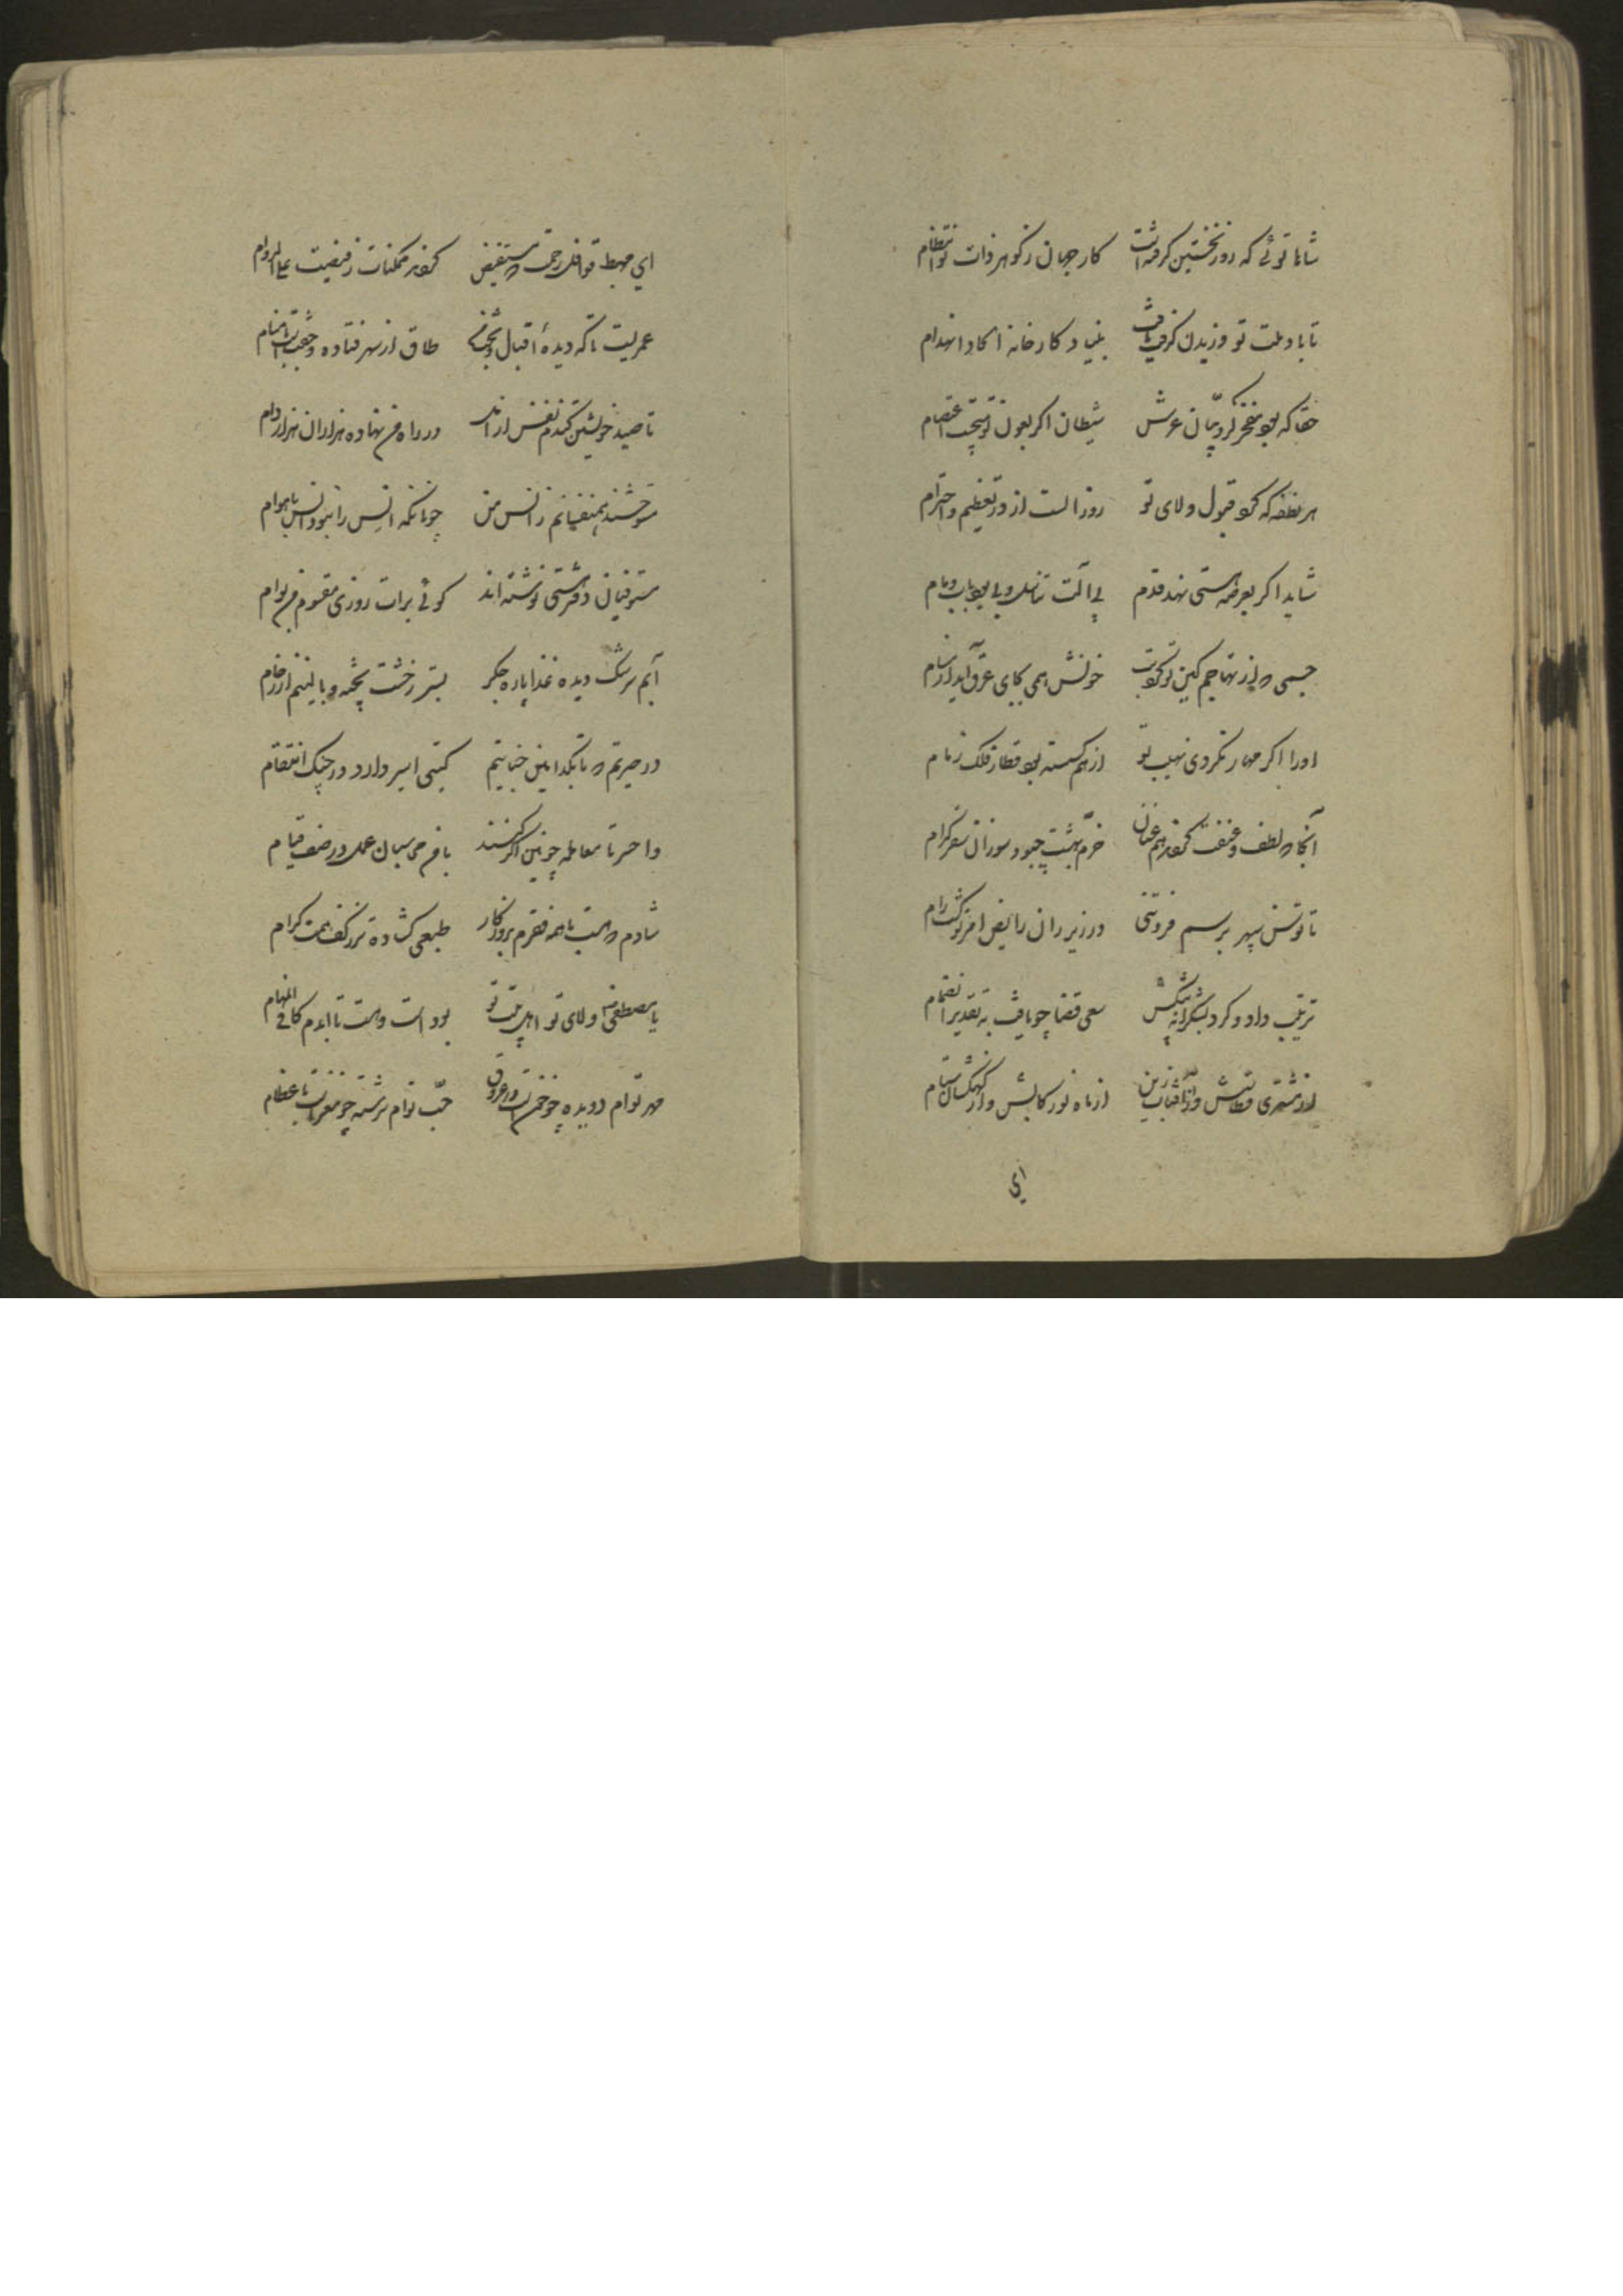 شاها توئی که روز نخستین گرفته است کار جهان ز گوهر ذات تو انتظام
تا باد ملت تو وزیدن گرفت یافت بنیاد کارخانه الحاد انهدام
حقا که بود مفخر کروبیان عرش شیطان اگر بعون تو میجست اعتصام
هر نطفه که کرد قبول ولای تو روز الست از در تعظیم و احترام
شاید اگر بعرصه هستی نهد قدم بی آلت تناسل و بی بود باب و مام
جسمی که از تهاجم کین تو کرد تب خونش همی بجای عرق آید از مسام
او را اگر مهار نکردی نهیب تو از هم گسسته بود قطار فلک زمام
آنجا که لطف و عنفت گردند هم عنان خرم بهشت چبود سوزان سقر کدام
تا توسن سپهر برسم فروتنی در زیر ران رایض امر تو گشت رام
ترتیب داد و کرد بشکرانه پیشکش سعی قضا چو یافت به تقدیر انضمام
از مشتری قطاش وز آفتاب زین از ماه نو رکابش و از کهکشان ستام
ای
ای مهبط قوافل رحمت که مستفیض گردند ممکنات ز فیضت علی الدوام
عمریست تا که دیده اقبال و بخت من طاق از سهر فتاده و جفت است با منام
تا صید خویشتن کندم نفس از امل در راه من نهاده هزاران هزار دام
متوحشند همنفسانم ز انس من چونانکه انس را نبود انس با هوام
مستوفیان دفتر هستی نوشته اند گوئی برات روزی مقسوم من بوام
آبم سرشک دیده غذا پاره جگر بستر ز خشت پخته و بالینم از رخام
در حیرتم که تا بکدامین خیانتم گیتی اسیر دارد در چنگ انتقام
واحسرتا معامله چونین اگر کنند با من محاسبان عمل در صف قیام
شادم که هست با همه فقرم بروزگار طبعی گشاده تر ز کف همت کرام
یا مصطفی ولای تو و اهل بیت تو بود است و هست تا ابدم کافی المهام
مهر توام دویده چو خون است در عروق حب توام سرشته چو مغز است با عظام